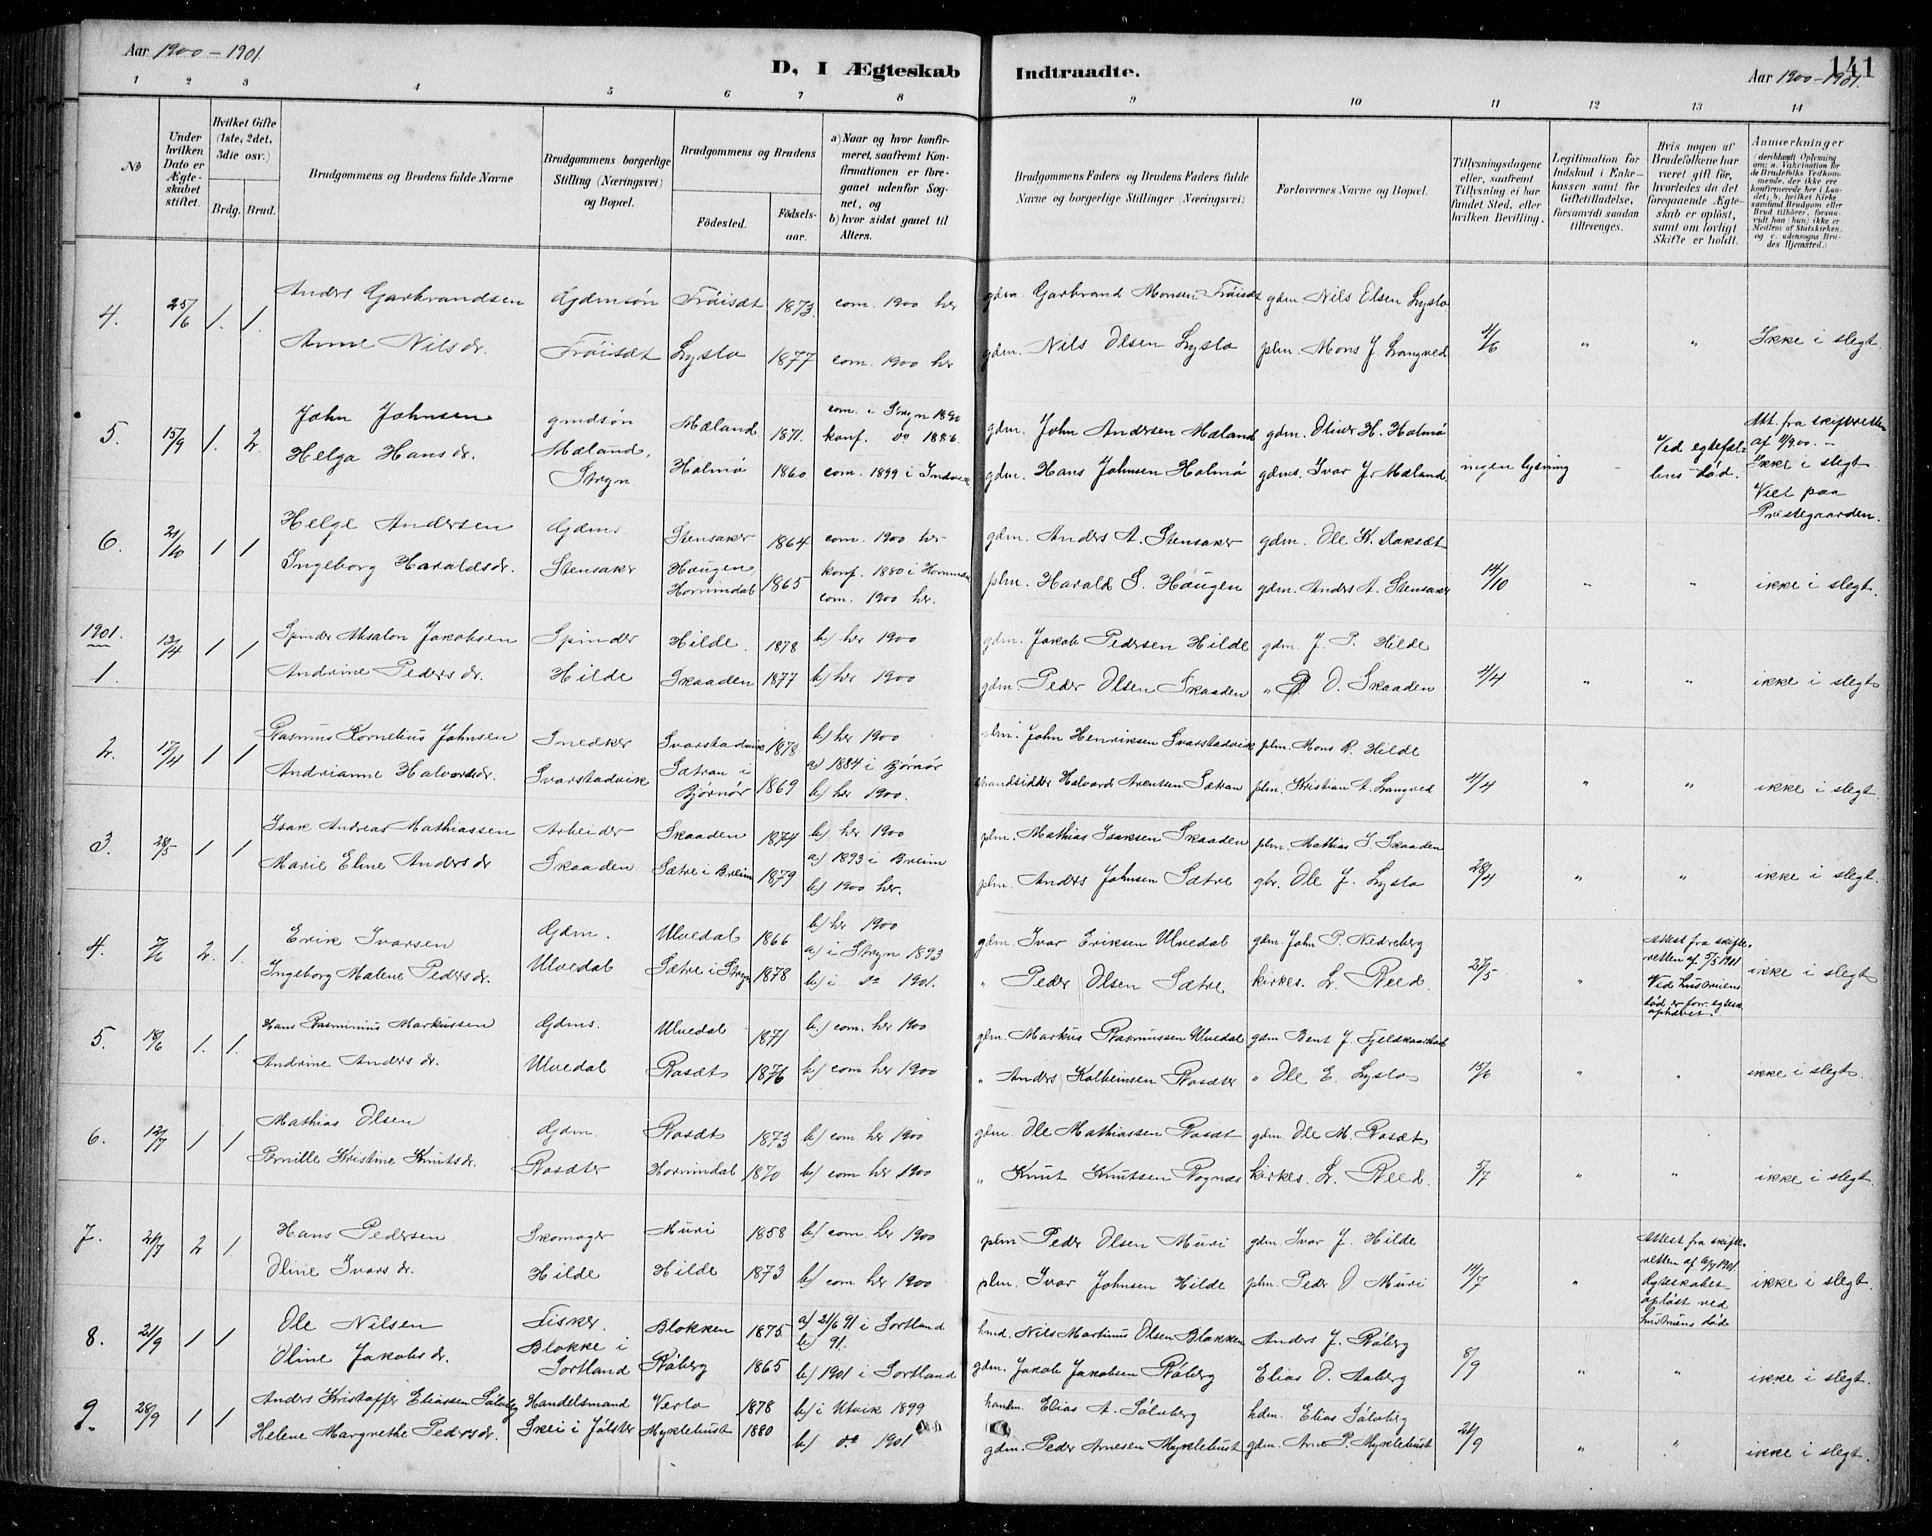 Aar 1900-1901.
D, I Ægteskab Indtraadte.
Aar 1900-1901.
141
1 2 3 4 5 6 7 8 9 10 11 12 13 14
No
Under hvilken Dato er Ægteskabet stiftet.
Hvilket Gifte (1ste, 2det, 3die osv.)
Brdg. Brud.
Brudgommens og Brudens fulde Navne
Brudgommens borgerlige Stilling (Næringsvei) og Bopæl.
Brudgommens og Brudens
Födested. Födselsaar.
a) Naar og hvor konfirmeret, saafremt Konfirmationen er foregaaet udenfor Sognet, og
b) hvor sidst gaaet til Alters.
Brudgommens Faders og Brudens Faders fulde Navne og borgerlige Stillinger (Næringsvei)
Forlovernes Navne og Bopæl.
Tillysningsdagene eller, saafremt Tillysning ei har fundet Sted, efter hvilken Bevilling.
Legitimation for Indskud i Enkekassen samt for Giftetilladelse, forsaavidt saadan tiltrænges.
Hvis nogen af Brudefolkene har været gift för, hvorledes da det foregaaende Ægteskab er oplöst, samt om lovligt Skifte er holdt.
Anmærkninger
(deriblandt Oplysning om: a. Vakcination for de Brudefolks Vedkommende, der ikke ere konfirmerede her i Landet; b. hvilket Kirkesamfund Brudgom eller Brud tilhörer, forsaavidt han (hun) ikke er Medlem af Statskirken, og c. udensogns Brudes Hjemsted.)
4. 25/6 1. 1. Anders Garbrandsen Gdmsøn Frøisæt 1873 com. 1900 her gdm. Garbrand Monsen Frøisæt gdm Nils Olsen Lyslo
Anne Nilsdr. Frøisæt Lyslo 1877 com. 1900 her gdm. Nils Olsen Lyslo plm. Mons J. Langved 4/6 " " Ikke i slegt.
5. 15/9 1. 2. John Johnsen gmdsøn Mæland 1871. com. i Stryn 1890 konf. do 1886. gdm. John Andersen Mæland gdm. Oliver H. Holmø
Att. fra skifteretten af 11/9 00. -
Helga Hansdr. Mæland, Stryn Holmø 1860 com. 1899 i Indvik gdm. Hans Johnsen Holmø gdms. Ivar J. Mæland. ingen lysning - Ved egtefællens død. Ikke i slegt
Viet paa Prestegaarden.
6. 21/10 1 1 Helge Andersen Gdms Stensaker 1864 com. 1900 her gdm. Anders A. Stensaker gdm. Ole K. Aaksæt
Ingeborg Haraldsdr. Stensaker Haugen Hornindal 1865 konf. 1880 i Hornindal com. 1900 her. plm. Harald S. Haugen gdm. Anders A. Stensaker 14/10 " " ikke i slegt.
1901.
1. 12/4 1 1 Spinder Absalon Jakobsen Spinder Hilde. 1878 b) her 1900 gdm. Jakob Pedersen Hilde gdm. J. P. Hilde
Andrine Pedersdr. Hilde Skaaden 1877 b) her 1900 gdm. Peder Olsen Skaaden " P O. Skaaden 4/4 " " ikke i slegt
2. 17/4 1 1 Rasmus Kornelius Johnsen Snedker Svarstadvik 1878 b) her 1900 plm. John Henriksen Svarstadvik plm. Mons R. Hilde
Andrianne Halvorsdr. Svarstadvik Sætran i Bjørnør 1869 a) 1884 i Bjørnør b) her 1900. strandsidder Halvard Arentsen Sætran plm. Kristian A. Langved 4/4 " " ikke i slegt.
3. 28/5 1 1 Isak Andreas Mathiassen Arbeider Skaaden 1874 b) her 1900 plm. Mathias Isaksen Skaaden plm. Mathias I. Skaaden
Marie Eline Andersdr Skaaden Sætre i Breim 1879 a) 1893 i Breim b) 1900 her. plm. Anders Johnsen Sætre gbr. Ole J. Lyslo 28/4 " " ikke i slegt.
4. 7/6 2. 1. Erik Ivarsen Gdm. Ulvedal 1866 b) her 1900 gdm. Ivar Eriksen Ulvedal gdm. John P. Nedreberg
Ingeborg Malene Pedersdr. Ulvedal Sætre i Stryn 1878 a) i Stryn 1893 b) i do 1901. " Peder Olsen Sætre kirkes. L. Reed 27/5 "
Attest fra skifteretten af 9/5 1901
Ved hustruens død er forr. egteskab ophævet.
ikke i slegt
5. 18/6 1. 1. Hans Rasminius Markussen Gdms. Ulvedal 1871 b) com. her 1900 gdm. Markus Rasmussen Ulvedal gdm Bent J. Fjeldskaarhøl
Andrine Andersdr. Ulvedal Rosæt 1876 b) com her 1900 " Anders Kolbeinsen Rosæter " Ole E. Lyslo 15/6 " " ikke i slegt.
6. 12/7 1 1 Mathias Olsen Gdm. Rosæt 1873 b) com. her 1900 gdm. Ole Mathiassen Rosæt gdm. Ole M. Rosæt
Pernille Kristine Knutsdr. Rosæter Hornindal 1870 b) com her 1900 " Knut Knutsen Rognæs kirkes. L. Reed. 5/7 " " ikke i slegt.
7. 21/7 2 1 Hans Pedersen Skomager Muri 1858 b) com. her 1900 plm Peder Olsen Muri gdm. Ivar J. Hilde
Oline Ivarsdr. Hilde Hilde 1873 b) com her 1900 plm. Ivar Johnsen Hilde plm. Peder O. Muri 14/7 "
Attest fra skifteretten af 6/7 1901
Egteskabet opløst ved hustruens død
ikke i slegt.
8. 21/9 1 1 Ole Nilsen Fisker Blokken 1875 a) 21/6 91 i Sortland b) 91. hmd. Nils Martinus Olsen Blokken Anders J. Røberg
Oline Jakobsdr. Blokke i Sortland Røberg 1865 b) 1901 i Sortland gdm. Jakob Jakobsen Røberg Elias O. Aaberg 8/9 " " ikke i slegt.
9. 28/9 1 1 Anders Kristoffer Eliassen Sølvberg Handelsmand Verlo 1878 b) i Utvik 1899 handm. Elias A. Sølvberg hdm. Elias Sølvberg
Helene Margrethe Pedersdr. Skei i Jølster Myklebust 1880 b) do 1901 gdm. Peder Arnesen Myklebust gdm. Arne P. Myklebust 21/9 " " ikke i slegt.